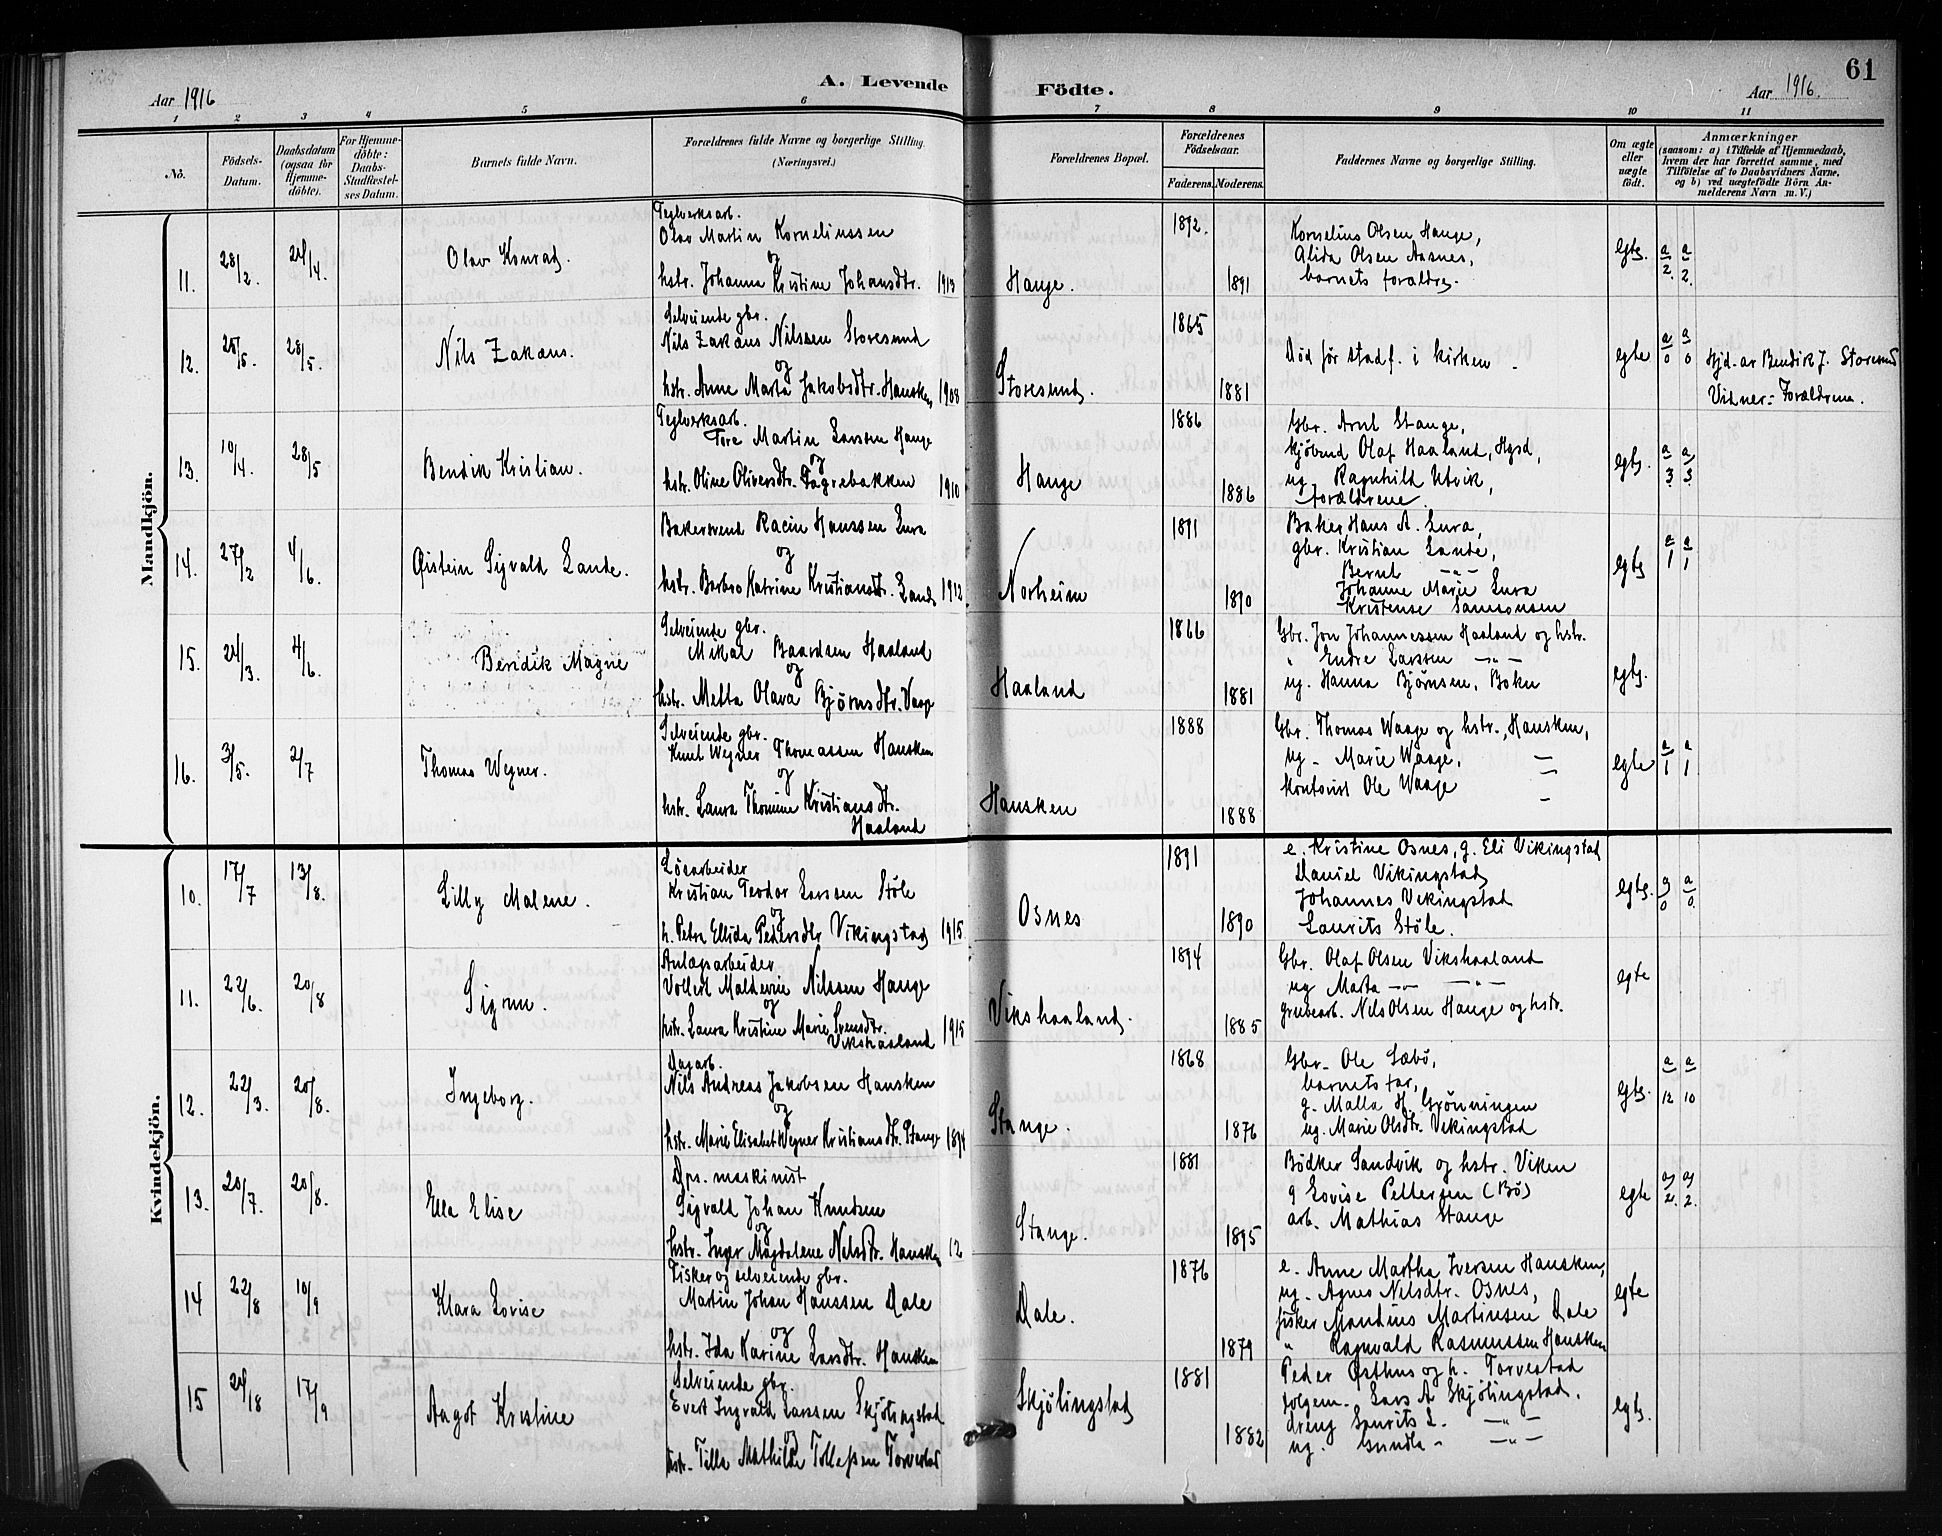 61
Aar 1916
A. Levende Födte.
Aar 1916.
1 2 3 4 5 6 7 8 9 10 11
No.
Födsels-Datum.
Daabsdatum (ogsaa for Hjemme-döbte).
For Hjemme-döbte: Daabs-Stadfæstel-ses Datum.
Barnets fulde Navn.
Forældrenes fulde Navne og borgerlige Stilling.
(Næringsvei.)
Forældrenes Bopæl.
Forældrenes Födselsaar.
Faderens. Moderens.
Faddernes Navne og borgerlige Stilling.
Om ægte eller uægte födt.
Anmærkninger
(saasom: a) i Tilfælde af Hjemmedaab,
hvem der har forrettet samme, med
Tilföielse af to Daabsvidners Navne,
og b) ved uægtefödte Börn An-
melderens Navn m. V.)
Mandkjön.
Teglverksarb.
11. 28/2. 24/4. Olav Konrad.
Olav Martin Korneliussen
og
hstr. Johanna Kristine Johansdtr. 1913
Hauge.
1892.
1891
Kornelius Olsen Hauge,
Alida Olsen Aasnes,
barnets forældre.
egte.
a/2. a/2.
12. 28/5. Nils Zakæus.
Selveiende gbr.
Nils Zakæus Nilssen Storesund
og
hstr. Anne Marta Jakobsdtr. Hausken 1908
Storesund.
1865
1881
Död för stadf. i kirken
egte
a/0 a/0
Hjd. av Bendik J. Storesund
Vidner: Forældrene.
13. 10/4. 28/5 Bendik Kristian.
Teglverksarb.
Tore Martin Larssen Hauge
og
hstr. Oline Oliversdtr. Fagrebakken 1910
Hauge
1886
1886
Gbr. Arnt Stange,
Kjöbmd Olaf Haaland, Hgsd,
ug Ragnhild Utvik,
forældrene
egte.
a/3 a/3
14. 27/2 4/6. Øistein Sigvald Lande.
Bakersvend Racin Hanssen Lura
og
hstr. Barbro Katrine Kristiansdtr. Lande 1912
Norheim
1891
1890
Baker Hans A. Lura,
gbr. Kristian Lande,
Bernt -"-
Johanne Marie Lura
Kristense Samsonsen
egte
a/1 a/1
15. 24/3. 4/6. Bendik Magne
Selveiende gbr.
Mikal Baardsen Haaland
og
hstr. Metta Olava Bjørnsdtr. Vaage
Haaland
1866
1881
Gbr. Jon Johannessen Haaland og hstr.
" Endre Larssen -"-
ug. Hanna Bjørnsen, Bokn
egte.
16. 3/5. 2/7 Thomas Wegner.
Selveiende gbr.
Knut Wegner Thomassen Hausken
og
hstr. Laura Thomine Kristiansdtr.
Haaland
Hausken
1888
1888
Gbr. Thomas Waage og hstr., Hausken,
ug - Marie Waage, -"-
kontorist Ole Waage -"-
egte
a/1 a/1
Kvindekjön.
10. 17/7 13/8. Lilly Malene.
Løsarbeider
Kristian Teodor Larssen Støle
og
h. Petra Ellida Pedersdtr Vikingstad 1915
Osnes
1891
1890
e. Kristine Osnes, g. Eli Vikingstad
Daniel Vikingstad
Johannes Vikingstad
Laurits Støle.
egte.
a/0 a/0.
11. 22/6. 20/8 Sigrun.
Anlægsarbeider.
Vollert Maldevin Nilssen Hauge
og
hstr. Laura Kristine Marie Svensdtr.
Vikshaaland 1915
Vikshaaland.
1894
1885
Gbr. Olaf Olsen Vikshaaland
ug Marta -"- -"-
grubearb. Nils Olsen Hauge og hstr.
egte
12. 22/3. 20/8. Ingeborg.
Dagarb.
Nils Andreas Jakobsen Hausken
og
hstr. Marie Elisabet Wegner Kristiansdtr. Stange 1894
Stange.
1868
1876
Gbr. Ole Sæbö,
barnets far,
g. Malla H. Grönningen
ug. Marie Olsdtr. Vikingstad
egte.
a/12 a/10
13. 20/7. 20/8. Ella Elise
Dps. maskinist
Sigvald Johan Knudsen
og
hstr. Inger Magdalene Nilsdtr. Hausken 12
Stange.
1881
1895
Bödker Sandvik og hstr. Viken
g Lovise Pettersen (Bö)
arb. Mathias Stange
egte
a/2. a/2.
14 22/8 10/9 Klara Lovise
Fisker og selveiende gbr.
Martin Johan Hanssen Dale
og
hstr. Ida Karine Larsdtr. Hausken
Dale.
1876
1879
e. Anne Martha Iversen Hausken,
ug. Agnes Nilsdtr. Osnes,
fisker Mandius Martinsen Dale
" Ragnvald Rasmussen Hausken
egte
15 17/9 Aagot Kristine
Selveiende gbr.
Evert Ingvald Larssen Skjölingstad
og
hstr. Tilla Mathilde Tollefsen Torvestad
Skjölingstad
1881
1882
Peder Østhus og h. Torvestad
folgem. Lars A Skjölingstad.
dreng Laurits L. -"-
ug. Gundla - -"-
egte.